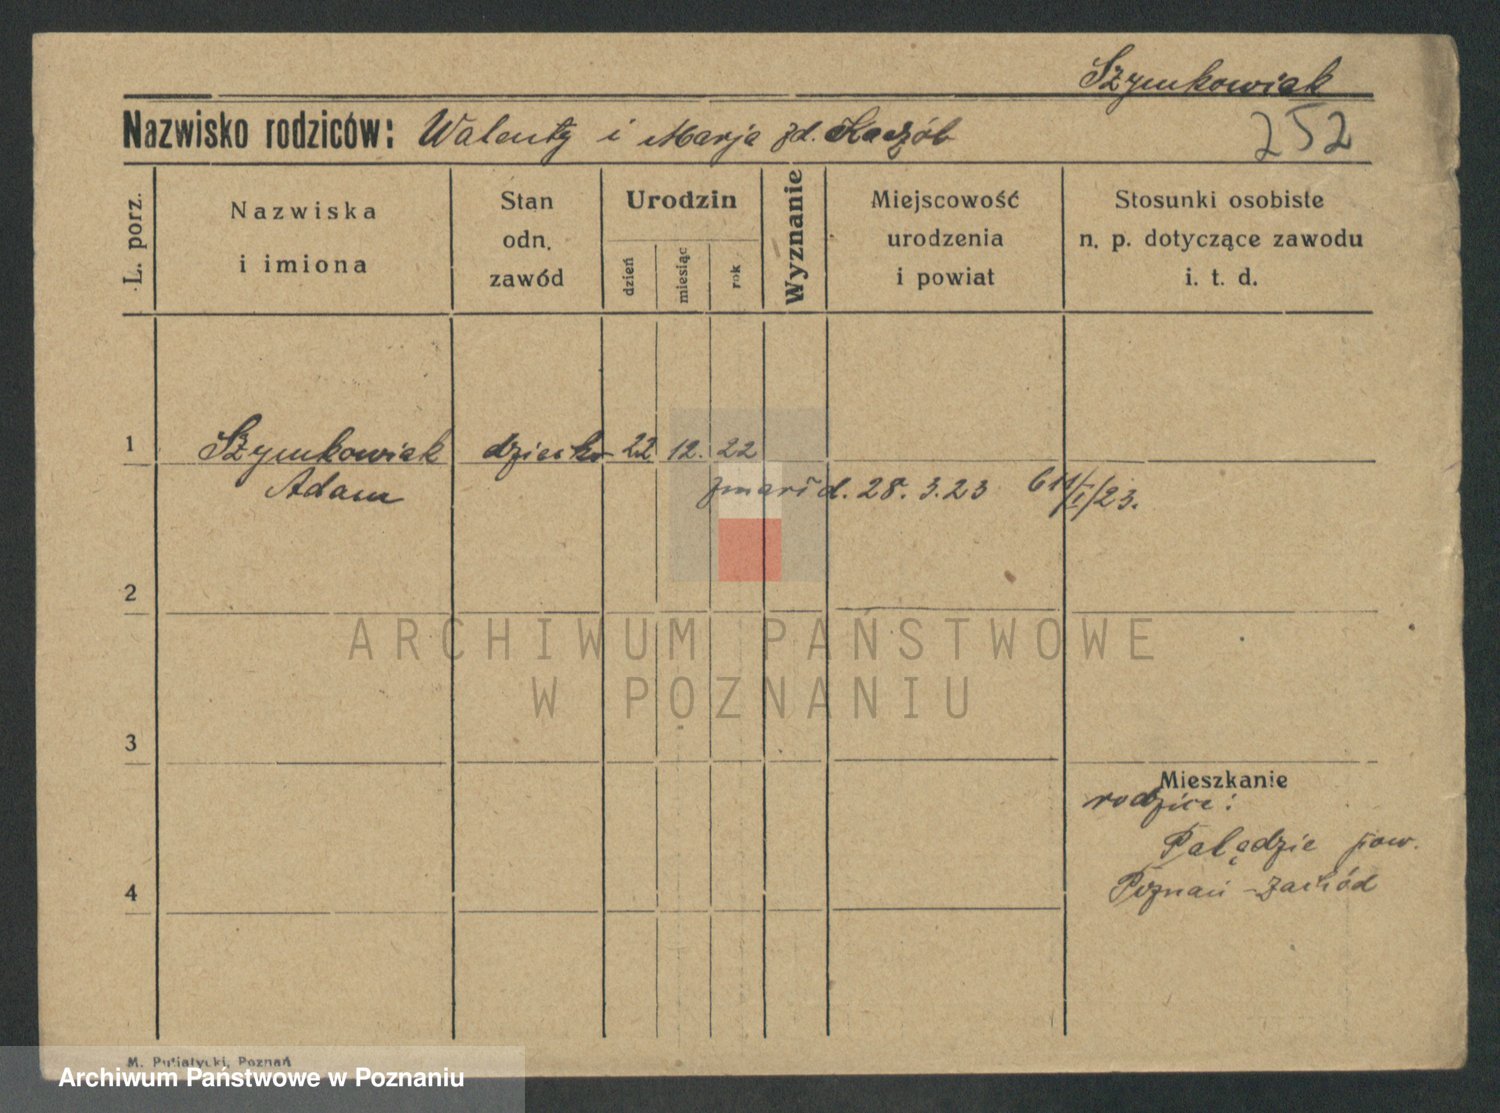 Szymkowiak
Nazwisko rodziców: Walenty i Marja zd. Kaczób
252
L. porz.
Nazwiska
i imiona
Stan
odn.
zawód
Urodzin
dzień
miesiąc
rok
Wyznanie
Miejscowość
urodzenia
i powiat
Stosunki osobiste
n. p. dotyczące zawodu
i. t. d.
1 Szymkowiak dziecko 22 12. 22
Adam zmarł d. 28. 3. 23 611/I/23.
2
ARCHIWUM PAŃSTWOWE
W POZNANIU
3
Mieszkanie
rodzice:
Palędzie pow.
4
Poznań-Zachód
M. Putiatycki, Poznań
Archiwum Państwowe w Poznaniu